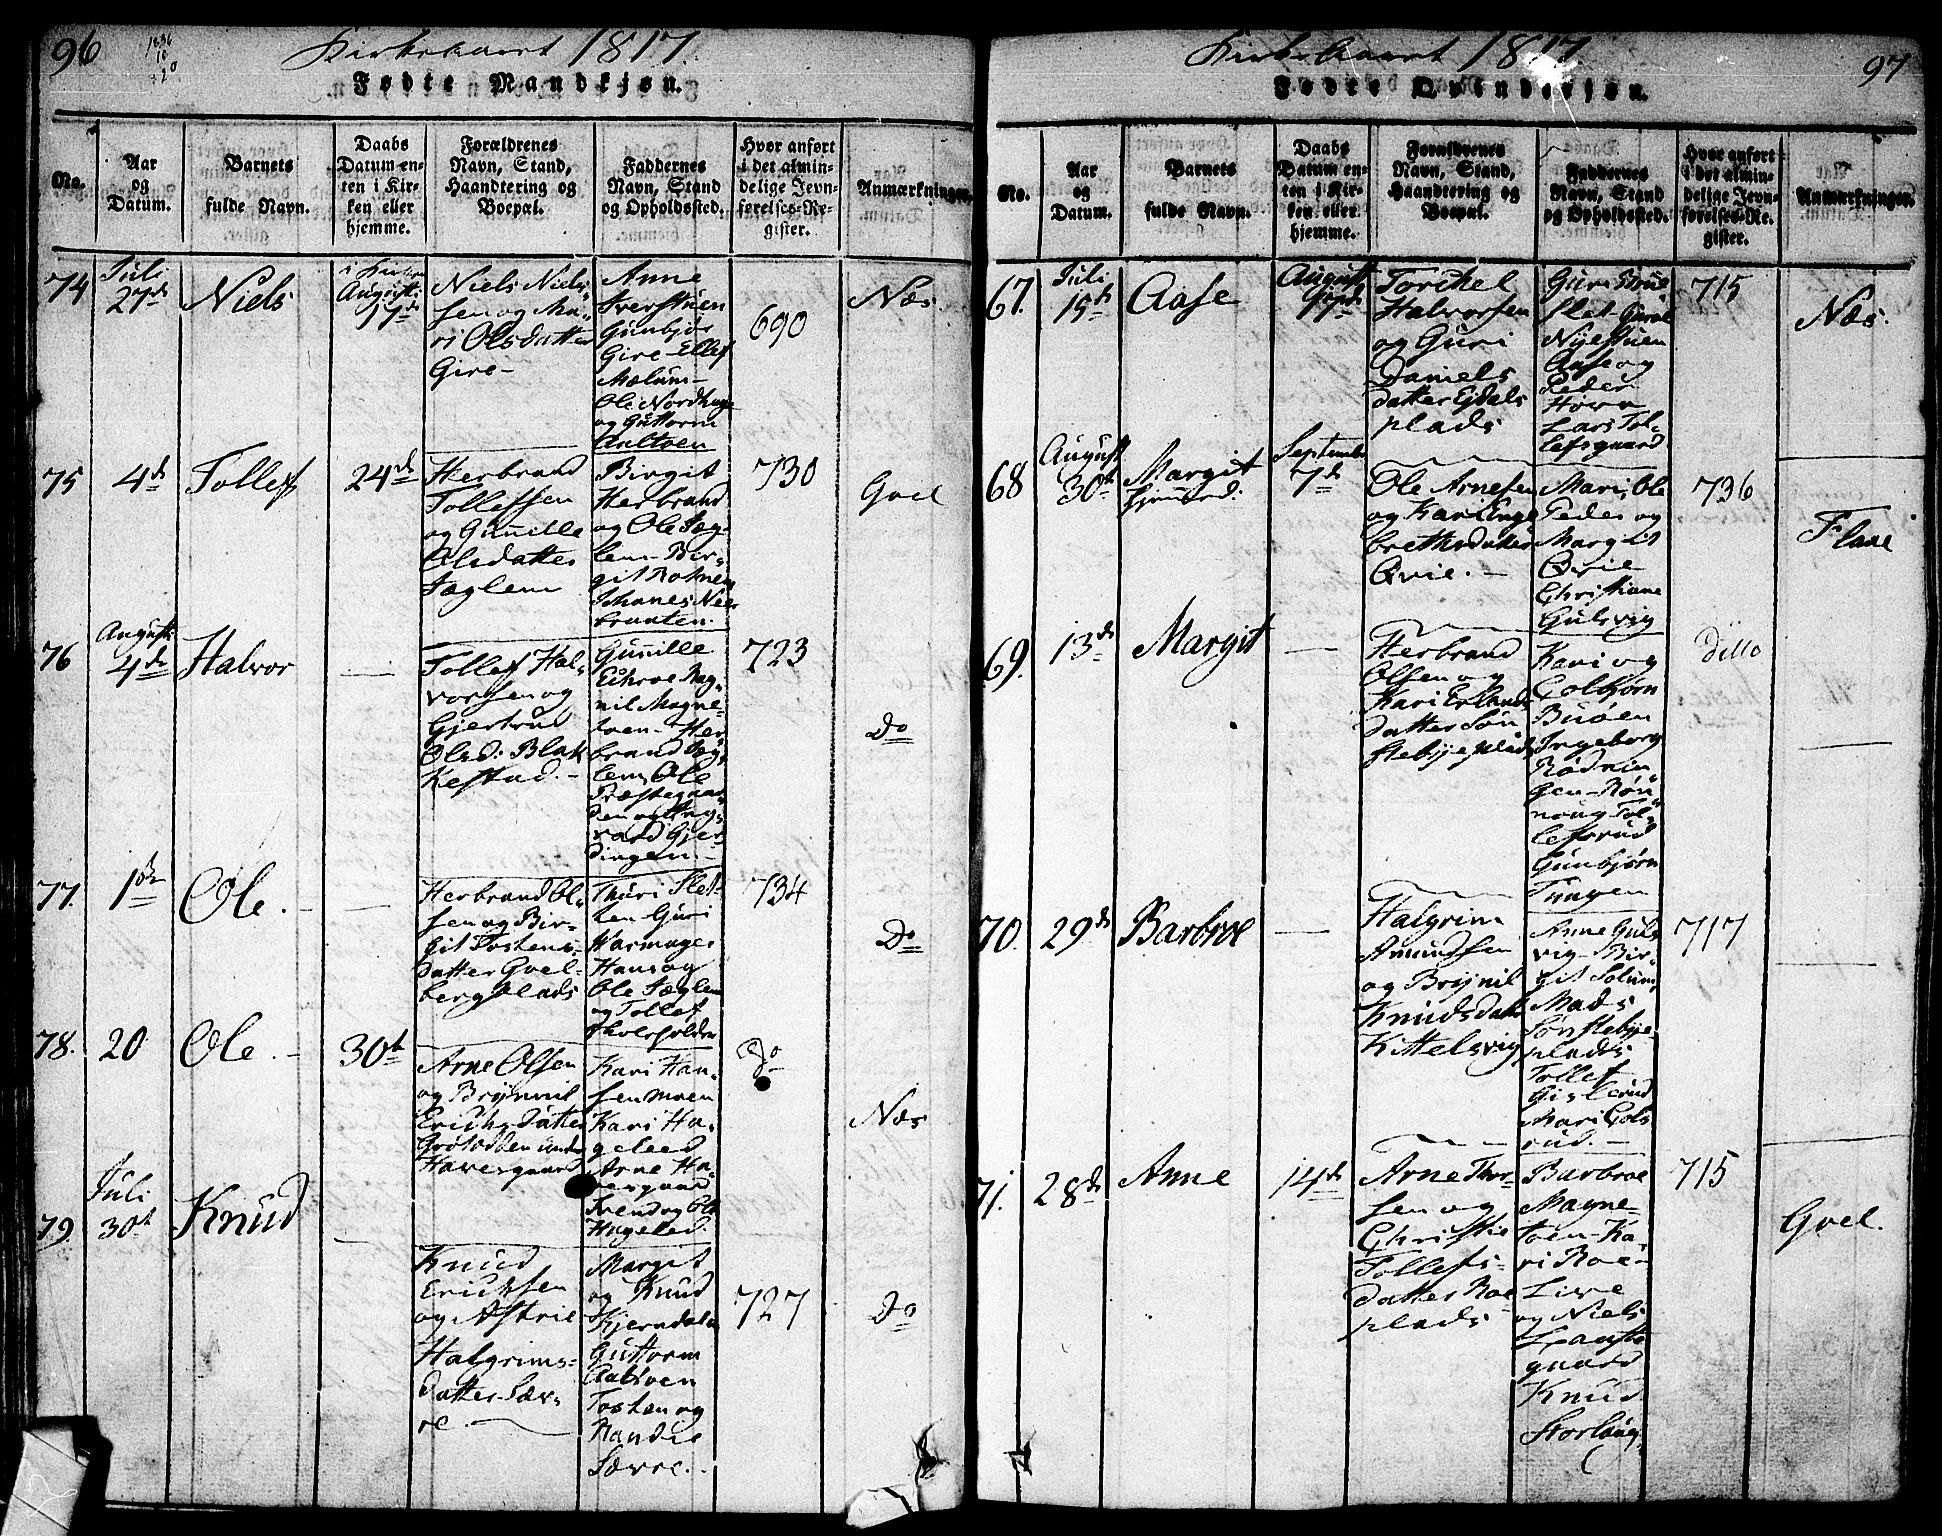 96
Kirkeaaret 1817.
Fødte Mandkjøn.
No.
Aar
og
Datum.
Barnets
fulde Navn.
Daabs
Datum en-
ten i Kir-
ken eller
hjemme.
Forældrenes
Navn, Stand,
Haandtering og
Boepæl.
Faddernes
Navn, Stand
og Opholdssted.
Hvor anført
i det almin-
delige Jevn-
førelses-Re-
gister.
Anmærkninger.
74
Juli
27de
Niels
i Kirken
Augusti
17de
Niels Niels
sen og Ma-
ri Olsdatter
Gire-
Anne
Iverstuen
Gunbjør
Gire-Ellef
Mælum-
Ole Nordhage
og Guttorm
690
Næs.
75
4de
Tollef
24de
Herbrand
Tollefsen
og Gunille
Olsdatter
Sæglem
Birgit
Herbrand
og Ole Sæg-
lem-Bir-
git
Johanes
braaten.
730
Goel
76
Augusti
4de
Halvor
Tollef Hal-
vorsen og
Gjertrud
Olsd: Blak
kestad.-
Gunille
Eikroe Rag-
nil Magne-
toen-Her
brand Sæg-
lem, Ole
Præstegaar-
den og
vard Gjer-
dingen.-
723
Do
77.
1ste
Ole.
Herbrand Ol-
sen og Bir-
git Tostens-
datter Goel-
berg plads
Thuri Slet-
ten-Guri
Warmager
Hans og
Ole Sæglem
og Tollef
734
Do
78.
20
Ole.
30te
Arne Olsen
og Brynnil
Erichsdatter
under
Haversgaard
Kari Han-
sen moen
Kari Ha-
geleed
Arne Ha-
versgaard
Svend og Ole
Hageled.
Do
Næs
79
Juli
30te
Knud
Knud
Erichsen
og Astrie
Halgrims-
datter Sæv-
re.
Margit
og Knud
Kjerndalen
Guttorm
Tosten og
Randie
Sævre.
727
Do
97
Kirkeaaret 1817.
Fødte Qvindekjøn.
No.
Aar
og
Datum.
Barnets
fulde Navn.
Daabs
Datum en-
ten i Kir-
ken eller
hjemme.
Forældrenes
Navn, Stand,
Haandtering og
Boepæl.
Faddernes
Navn, Stand
og Opholdssted.
Hvor anført
i det almin-
delige Jevn-
førelses-Re-
gister.
Anmærkninger.
67.
Juli
15de
Aase
Augusti
17de
Torkel
Halvorsen
og Guri
Daniels
datter Ejdals
plads
Guri
Nyestuen
Aase og
Peder
Lars Tol-
lefsgaard
715
Næs.
68
August
30te
Margit
September
7de
Ole Arnesen
og Kari Enge
brethsdatter
Qvie.-
Mari, Ole
Peder og
Margit
Qvie
Christiane
Gulsvig
736
Flaae
69.
13de
Margit
Herbrand
Olsen og
Kari Erlands
datter Søn
stebye plads
Kari og
Colbjørn
Buøen
Ingeborg
gen-Røn-
noug Tol-
lefsrud
Gunbjørn
Tungen
Ditto
70.
29de
Barbroe
Halgrim
Amundsen
og Brynil
Knudsdatter
Kittelsvig
Anne Guls
vig-Bir-
git Solum,
Mads
Sønstebye-
plads
Tollef
Gislerud
Mari Gols
rud.-
717
71.
28de
Anne
14de
Arne Thor-
sen og
Christie
Tollefs-
datter Roe
plads
Barbroe
Magne-
toen-Ka-
ri Roe-
Live
og Niels
gaard
Knud
715
Goel.